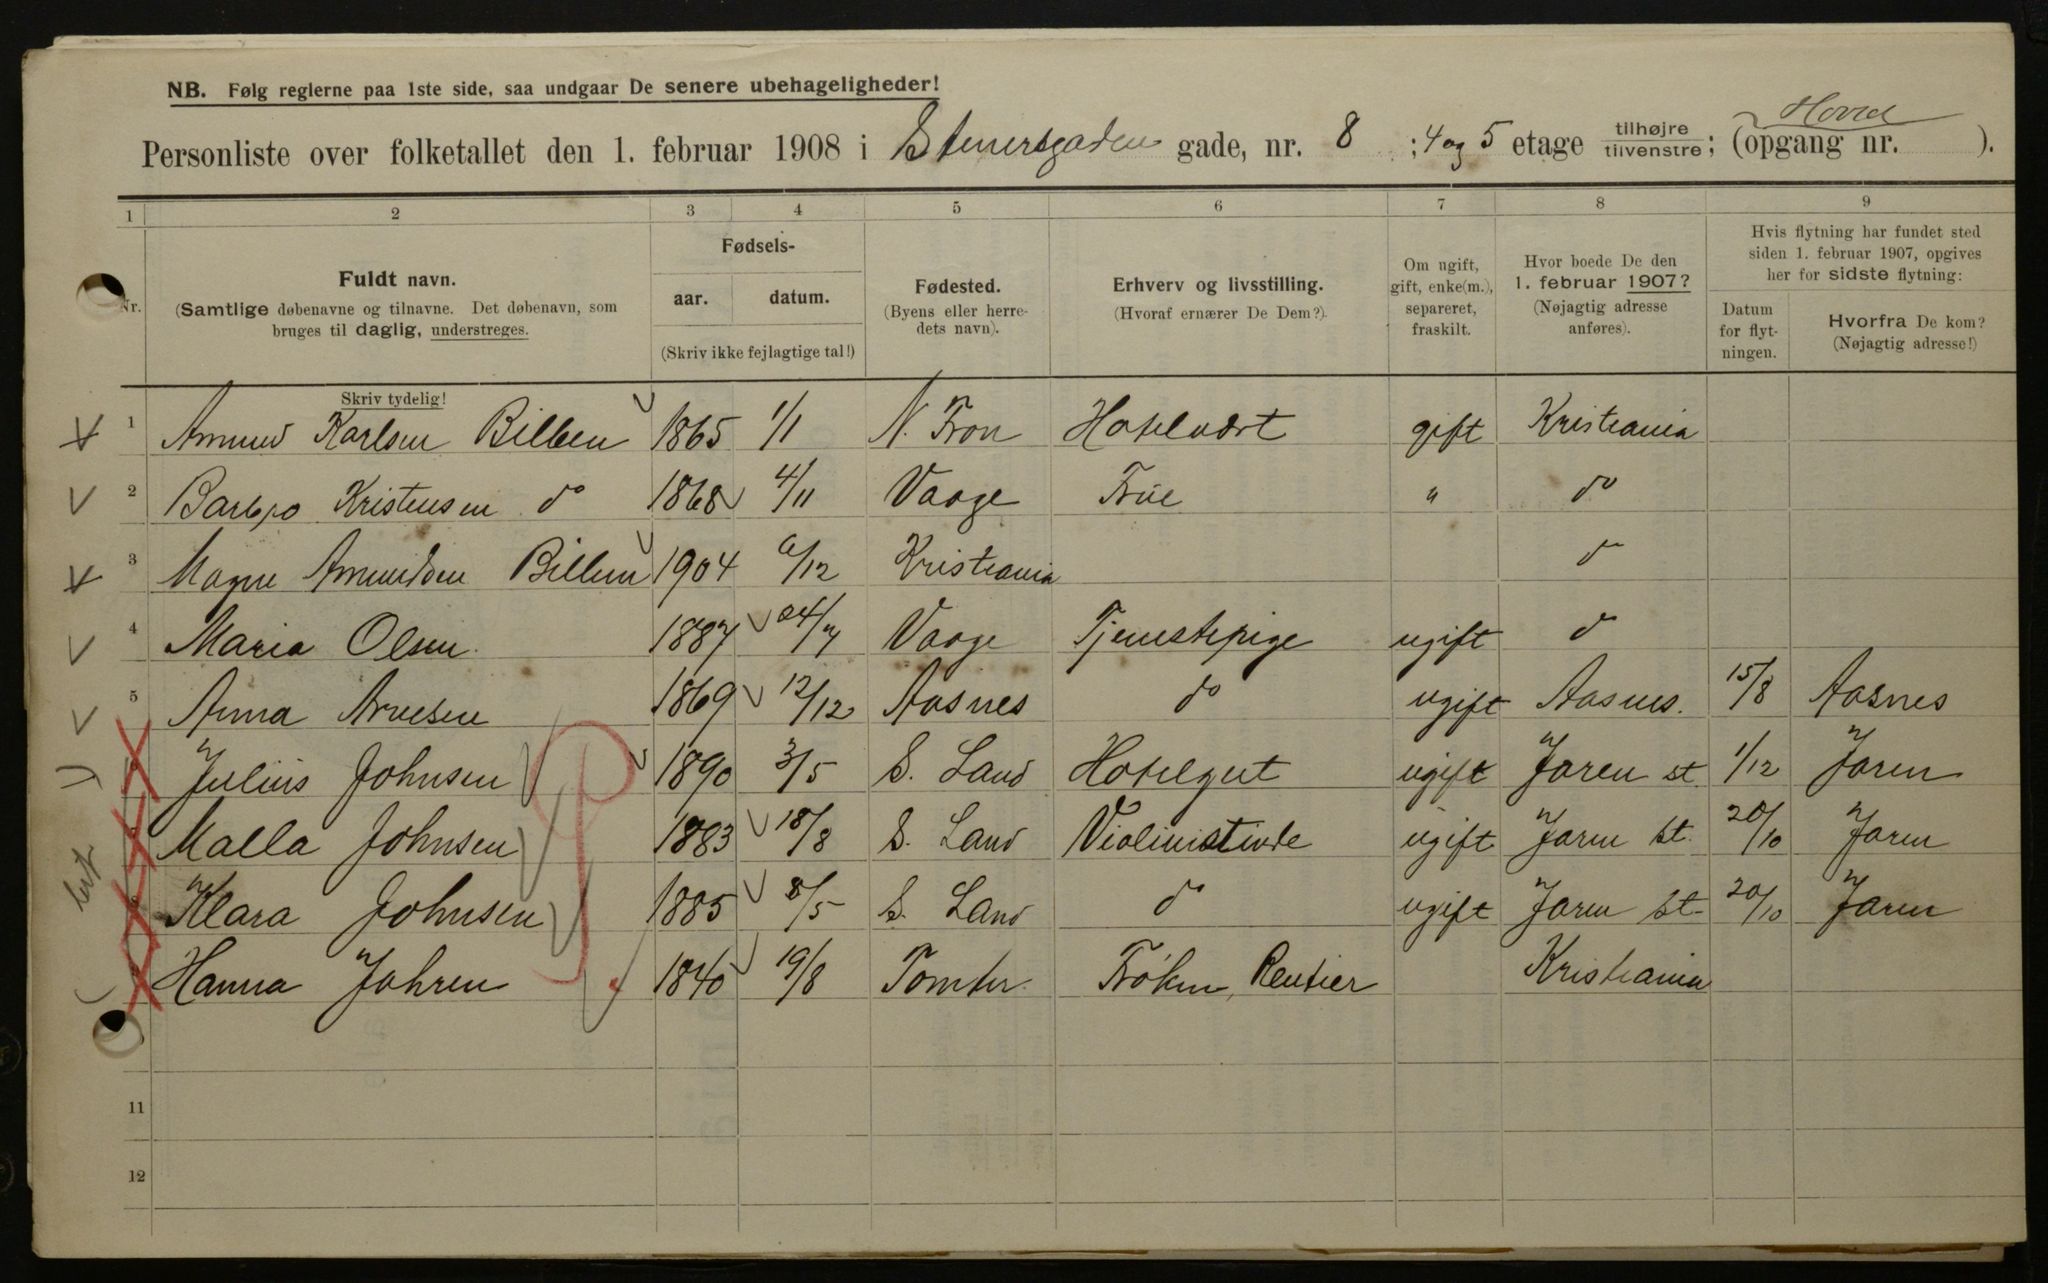 NB. Følg reglerne paa 1ste side, saa undgaar De senere ubehageligheder!
Hoved
Personliste over folketallet den 1. februar 1908 i Stenersgaden gade, nr. 8 ; 4 og 5 etage tilhøjre tilvenstre ; (opgang nr. ).
1 2 3 4 5 6 7 8 9
Nr.
Fuldt navn.
(Samtlige døbenavne og tilnavne. Det døbenavn, som
bruges til daglig, understreges.
Fødsels-
aar. datum.
(Skriv ikke fejlagtige tal!)
Fødested.
(Byens eller herre-
dets navn).
Erhverv og livsstilling.
(Hvoraf ernærer De Dem?).
Om ugift,
gift, enke(m.),
separeret,
fraskilt.
Hvor boede De den
1. februar 1907?
(Nøjagtig adresse
anføres).
Hvis flytning har fundet sted
siden 1. februar 1907, opgives
her for sidste flytning:
Datum
for flyt-
ningen.
Hvorfra De kom?
(Nøjagtig adresse!)
Skriv tydelig!
1 Amund Karlsen Billben 1865 1/1 N. Fron Hotelvært gift Kristiania
2 Barbro Kristensen do 1868 4/11 Vaage Frue " do
3 Magne Amundsen Billen 1904 6/12 Kristiania do
4 Maria Olsen 1887 24/7 Vaage Tjenestepige ugift do
5 Anna Arnesen 1869 12/12 Aasnes do ugift Aasnes. 15/8 Aasnes
Julius Johnsen 1890 3/5 S. Land Hotelgut ugift Jaren st. 1/12 Jaren
Malla Johnsen 1883 18/8 S. Land Violinistinde ugift Jaren St. 20/10 Jaren
Klara Johnsen 1885 8/5 S. Land do ugift Jaren St. 20/10 Jaren
Hanna Jahren 1840 19/8 Tomter Frøken, Rentier Kristiania
11
12